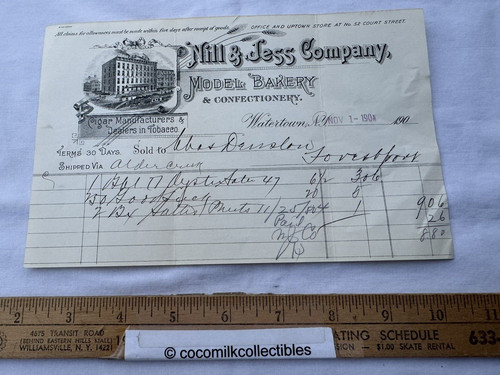 All claims for allowances must be made within five days after receipt of goods.
OFFICE AND UPTOWN STORE AT No. 52 COURT STREET.
Nill & Jess Company,
MODEL BAKERY
& CONFECTIONERY.
Cigar Manufacturers &
Dealers in Tobacco
Watertown, N.Y. NOV 1-1904 190
TERMS 30 DAYS. Sold to Chas Denslow
Forestport
SHIPPED VIA Alder Creek
1 Bbl Oyster 47 6½ 3 06
50 Good Luck 20 5
2 Bx 11/25/04 1 9 06
Paid 26
N J Co 8 80
2 3 4 5 6 7 8 9 10 11
4675 TRANSIT ROAD
(BEHIND EASTERN HILLS MALL)
WILLIAMSVILLE, N. Y. 14221
ATING SCHEDULE 633-
SION — $1.00 SKATE RENTAL
© cocomilkcollectibles